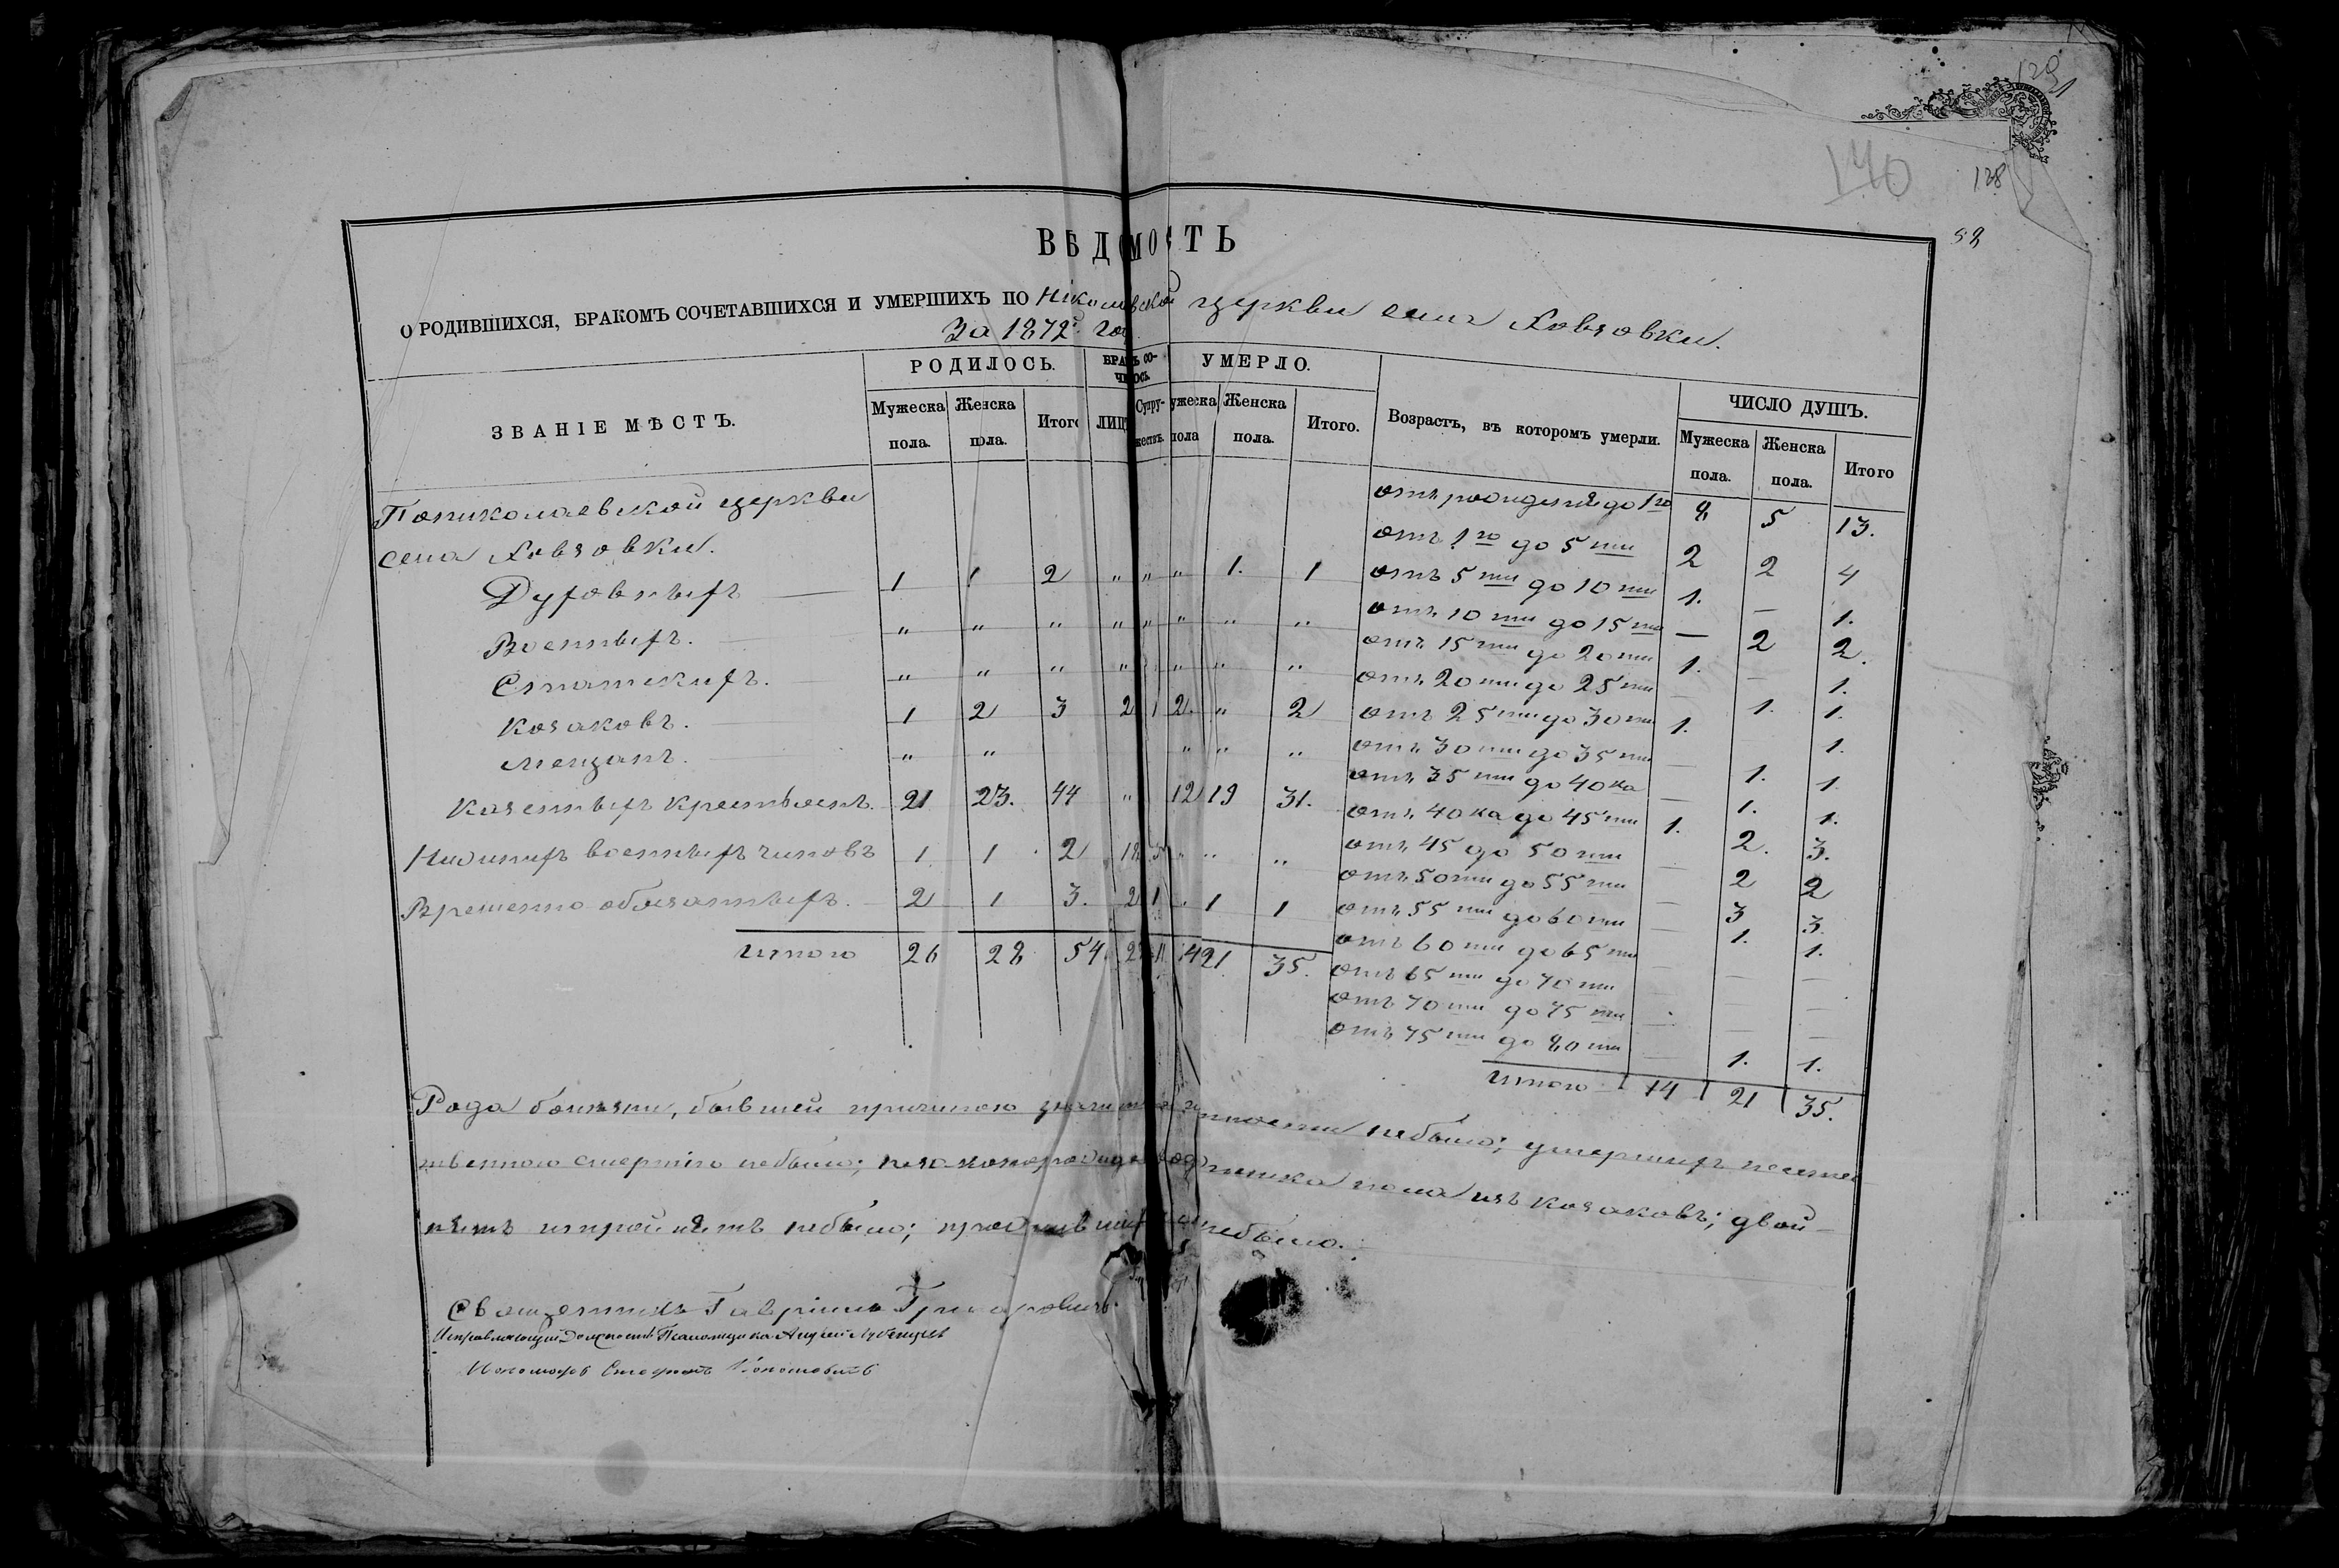 129
170
128
58
ВѢДОМОСТЬ
О РОДИВШИХСЯ, БРАКОМЪ СОЧЕТАВШИХСЯ И УМЕРШИХЪ ПО Николаевской церкви села
За 1872й годъ
ЗВАНІЕ МѢСТЪ.
РОДИЛОСЬ.
Мужеска пола. Женска пола. Итого
ЛИЦЪ Супружествъ.
УМЕРЛО.
Мужеска пола Женска пола. Итого.
Возрастъ, въ которомъ умерли.
ЧИСЛО ДУШЪ.
Мужеска пола. Женска пола. Итого
По николаевской церкви
села
Духовныхъ 1 1 2 " " " 1. 1
Военныхъ. " " " " " " " "
Статскихъ. " " " " " " "
Козаковъ. 1 2 3 2 1 2 " 2
Мещанъ. " " " " "
Казенныхъ крестьянъ. 21 23. 44 " 12 19 31.
Нижнихъ военныхъ чиновъ 1 1 2 18 " "
Временно обязанныхъ. 2 1 3. 2 1 1 1
Итого 26 28 54 21. 35.
отъ рожденія до 1го 8 5 13.
отъ 1го до 5ти 2 2 4
отъ 5ти до 10ти 1. — 1.
отъ 10ти до 15ти — 2 2.
отъ 15ти до 20ти 1. — 1.
отъ 20ти до 25ти — 1. 1.
отъ 25ти до 30ти 1. 1.
отъ 30ти до 35ти — 1. 1.
отъ 35ти до 40ка — 1. 1.
отъ 40ка до 45ти 1. 2. 3.
отъ 45 до 50ти — 2 2
отъ 50ти до 55ти — 3 3.
отъ 55ти до 60ти — 1. 1.
отъ 60ти до 65ти — — —
отъ 65ти до 70ти — —
отъ 70ти до 75ти — —
отъ 75ти до 80ти — 1. 1.
Итого 14 21 35.
Рода болѣзни, бывшей причиною небыло; умершихъ неесте
твенною смертію небыло; пола изъ козаковъ; двой
небыло; небыло.
Священникъ Гавріилъ
Исправляющій Должность Псаломщика Андрей
Пономарь Стефанъ